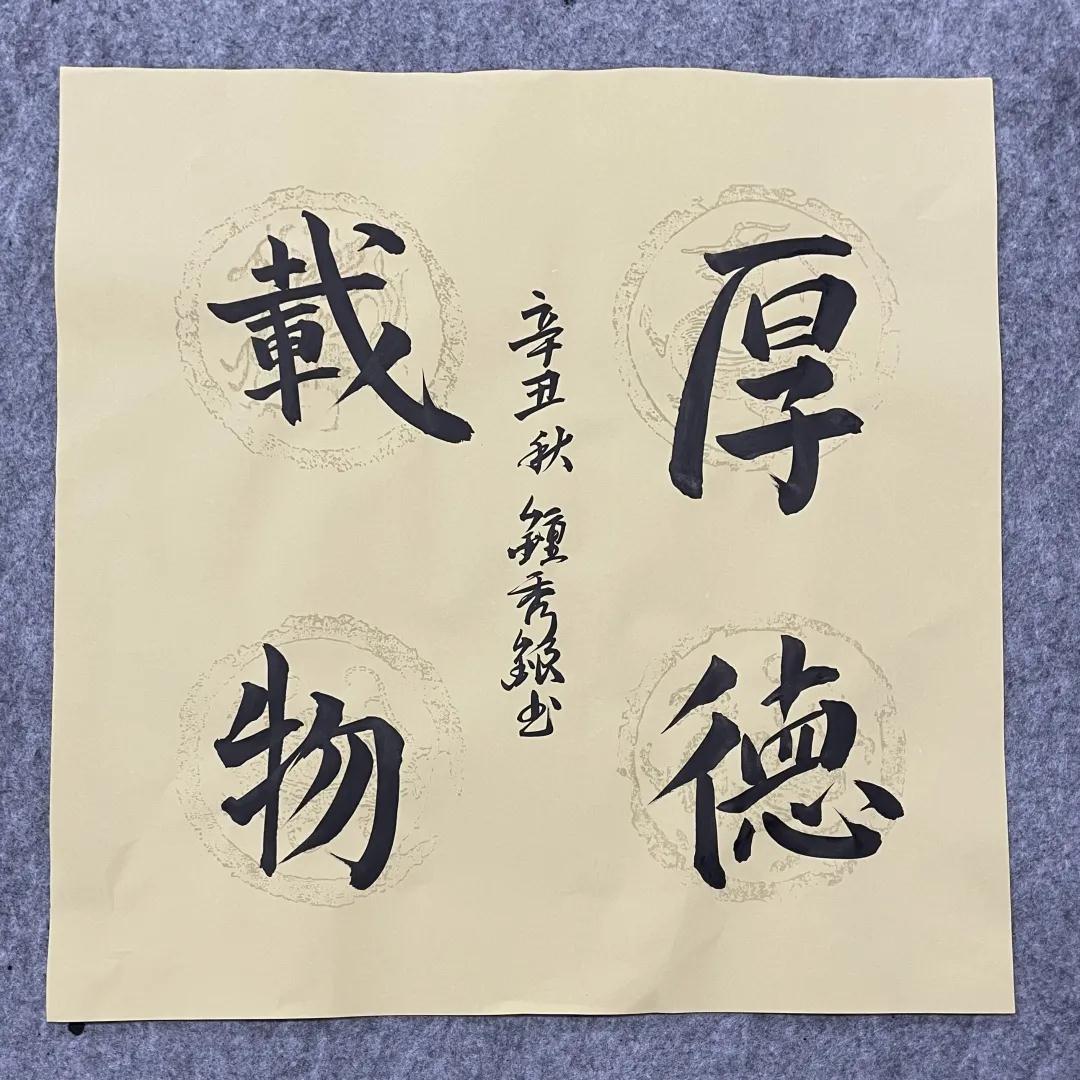 厚德
載物
辛丑秋鍾秀銀书